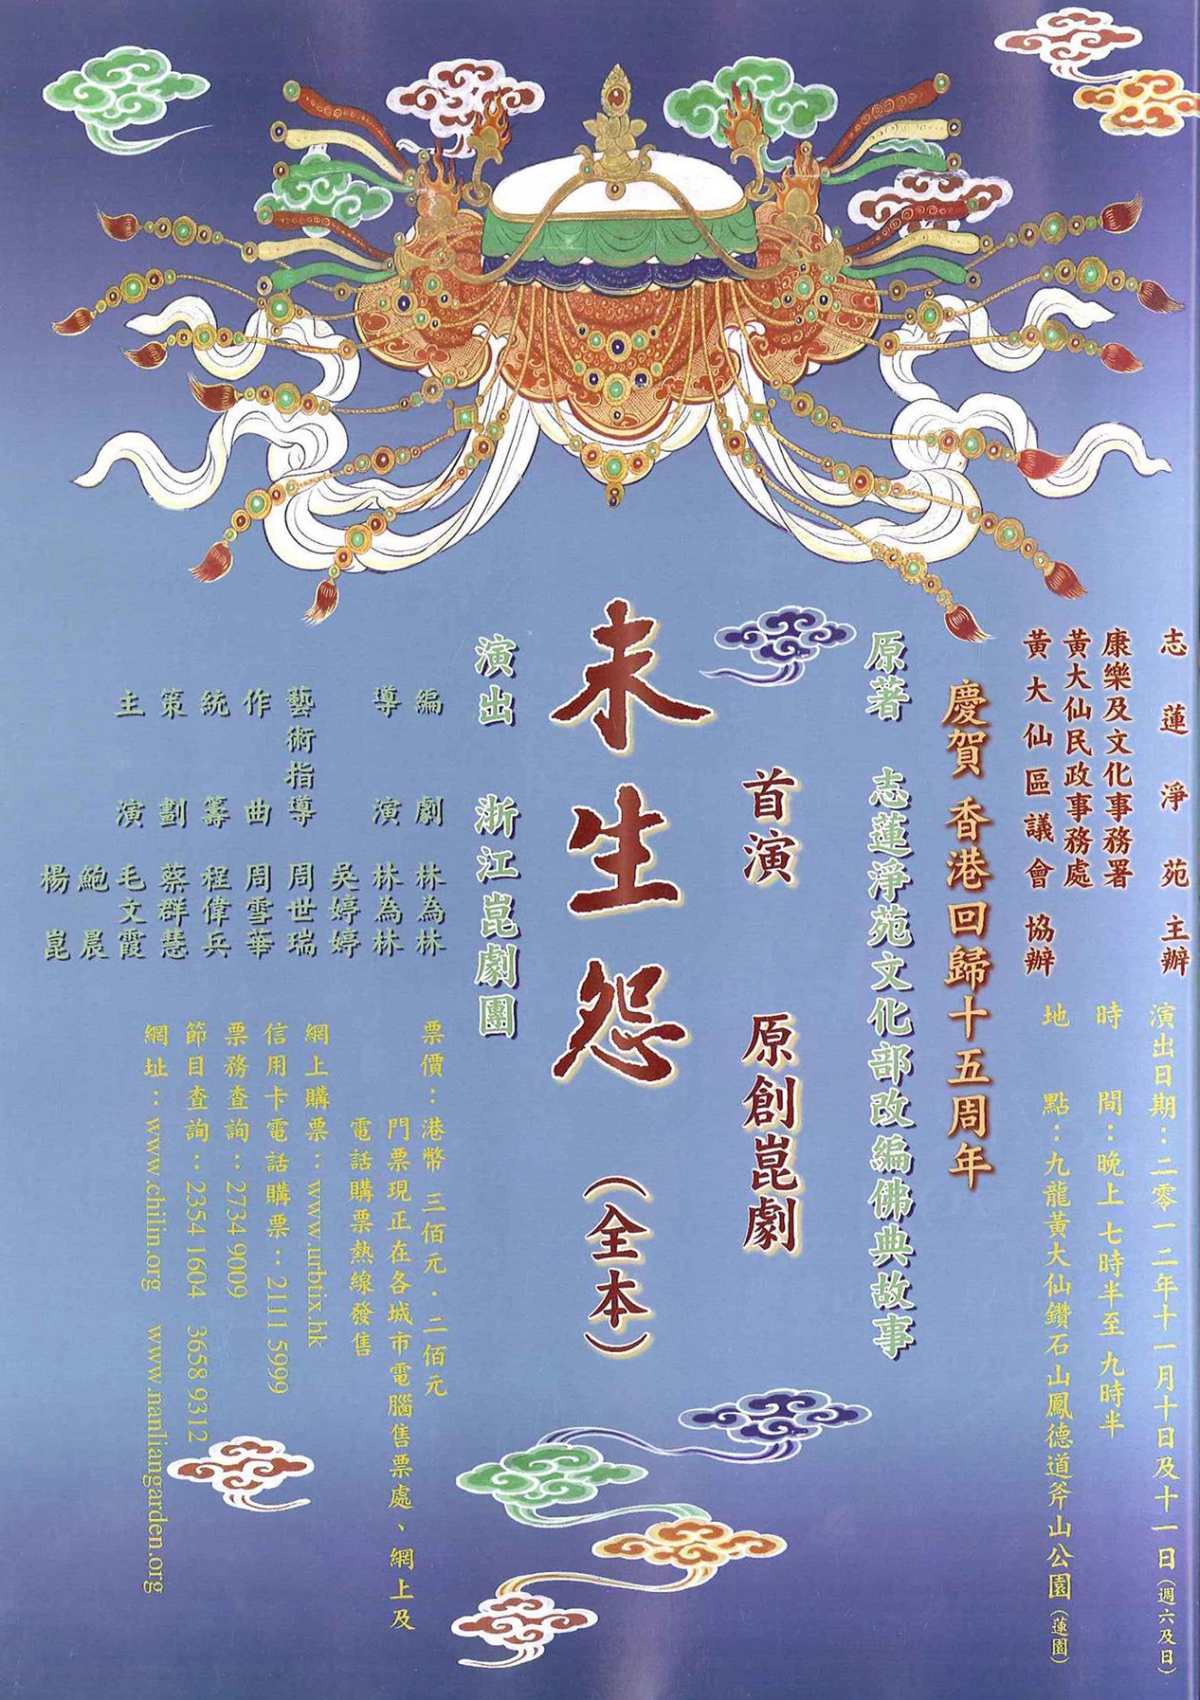 志蓮淨苑 主辦
康樂及文化事務署
黃大仙民政事務處
黃大仙區議會 協辦
演出日期：二零一二年十一月十日及十一日（週六及日）
時間：晚上七時半至九時半
地點：九龍黃大仙鑽石山鳳德道斧山公園（蓮園）
慶賀 香港回歸十五周年
原著 志蓮淨苑文化部改編佛典故事
首演 原創崑劇
未生怨（全本）
演出 浙江崑劇團
編劇 林為林
導演 林為林
吳婷婷
藝術指導 周世瑞
作曲 周雪華
統籌 程偉兵
策劃 蔡群慧
主演 毛文霞
鮑晨
楊崑
票價：港幣 三佰元．二佰元
門票現正在各城市電腦售票處、網上及
電話購票熱線發售
網上購票：www.urbtix.hk
信用卡電話購票：2111 5999
票務查詢：2734 9009
節目查詢：2354 1604 3658 9312
網址：www.chilin.org www.nanliangarden.org